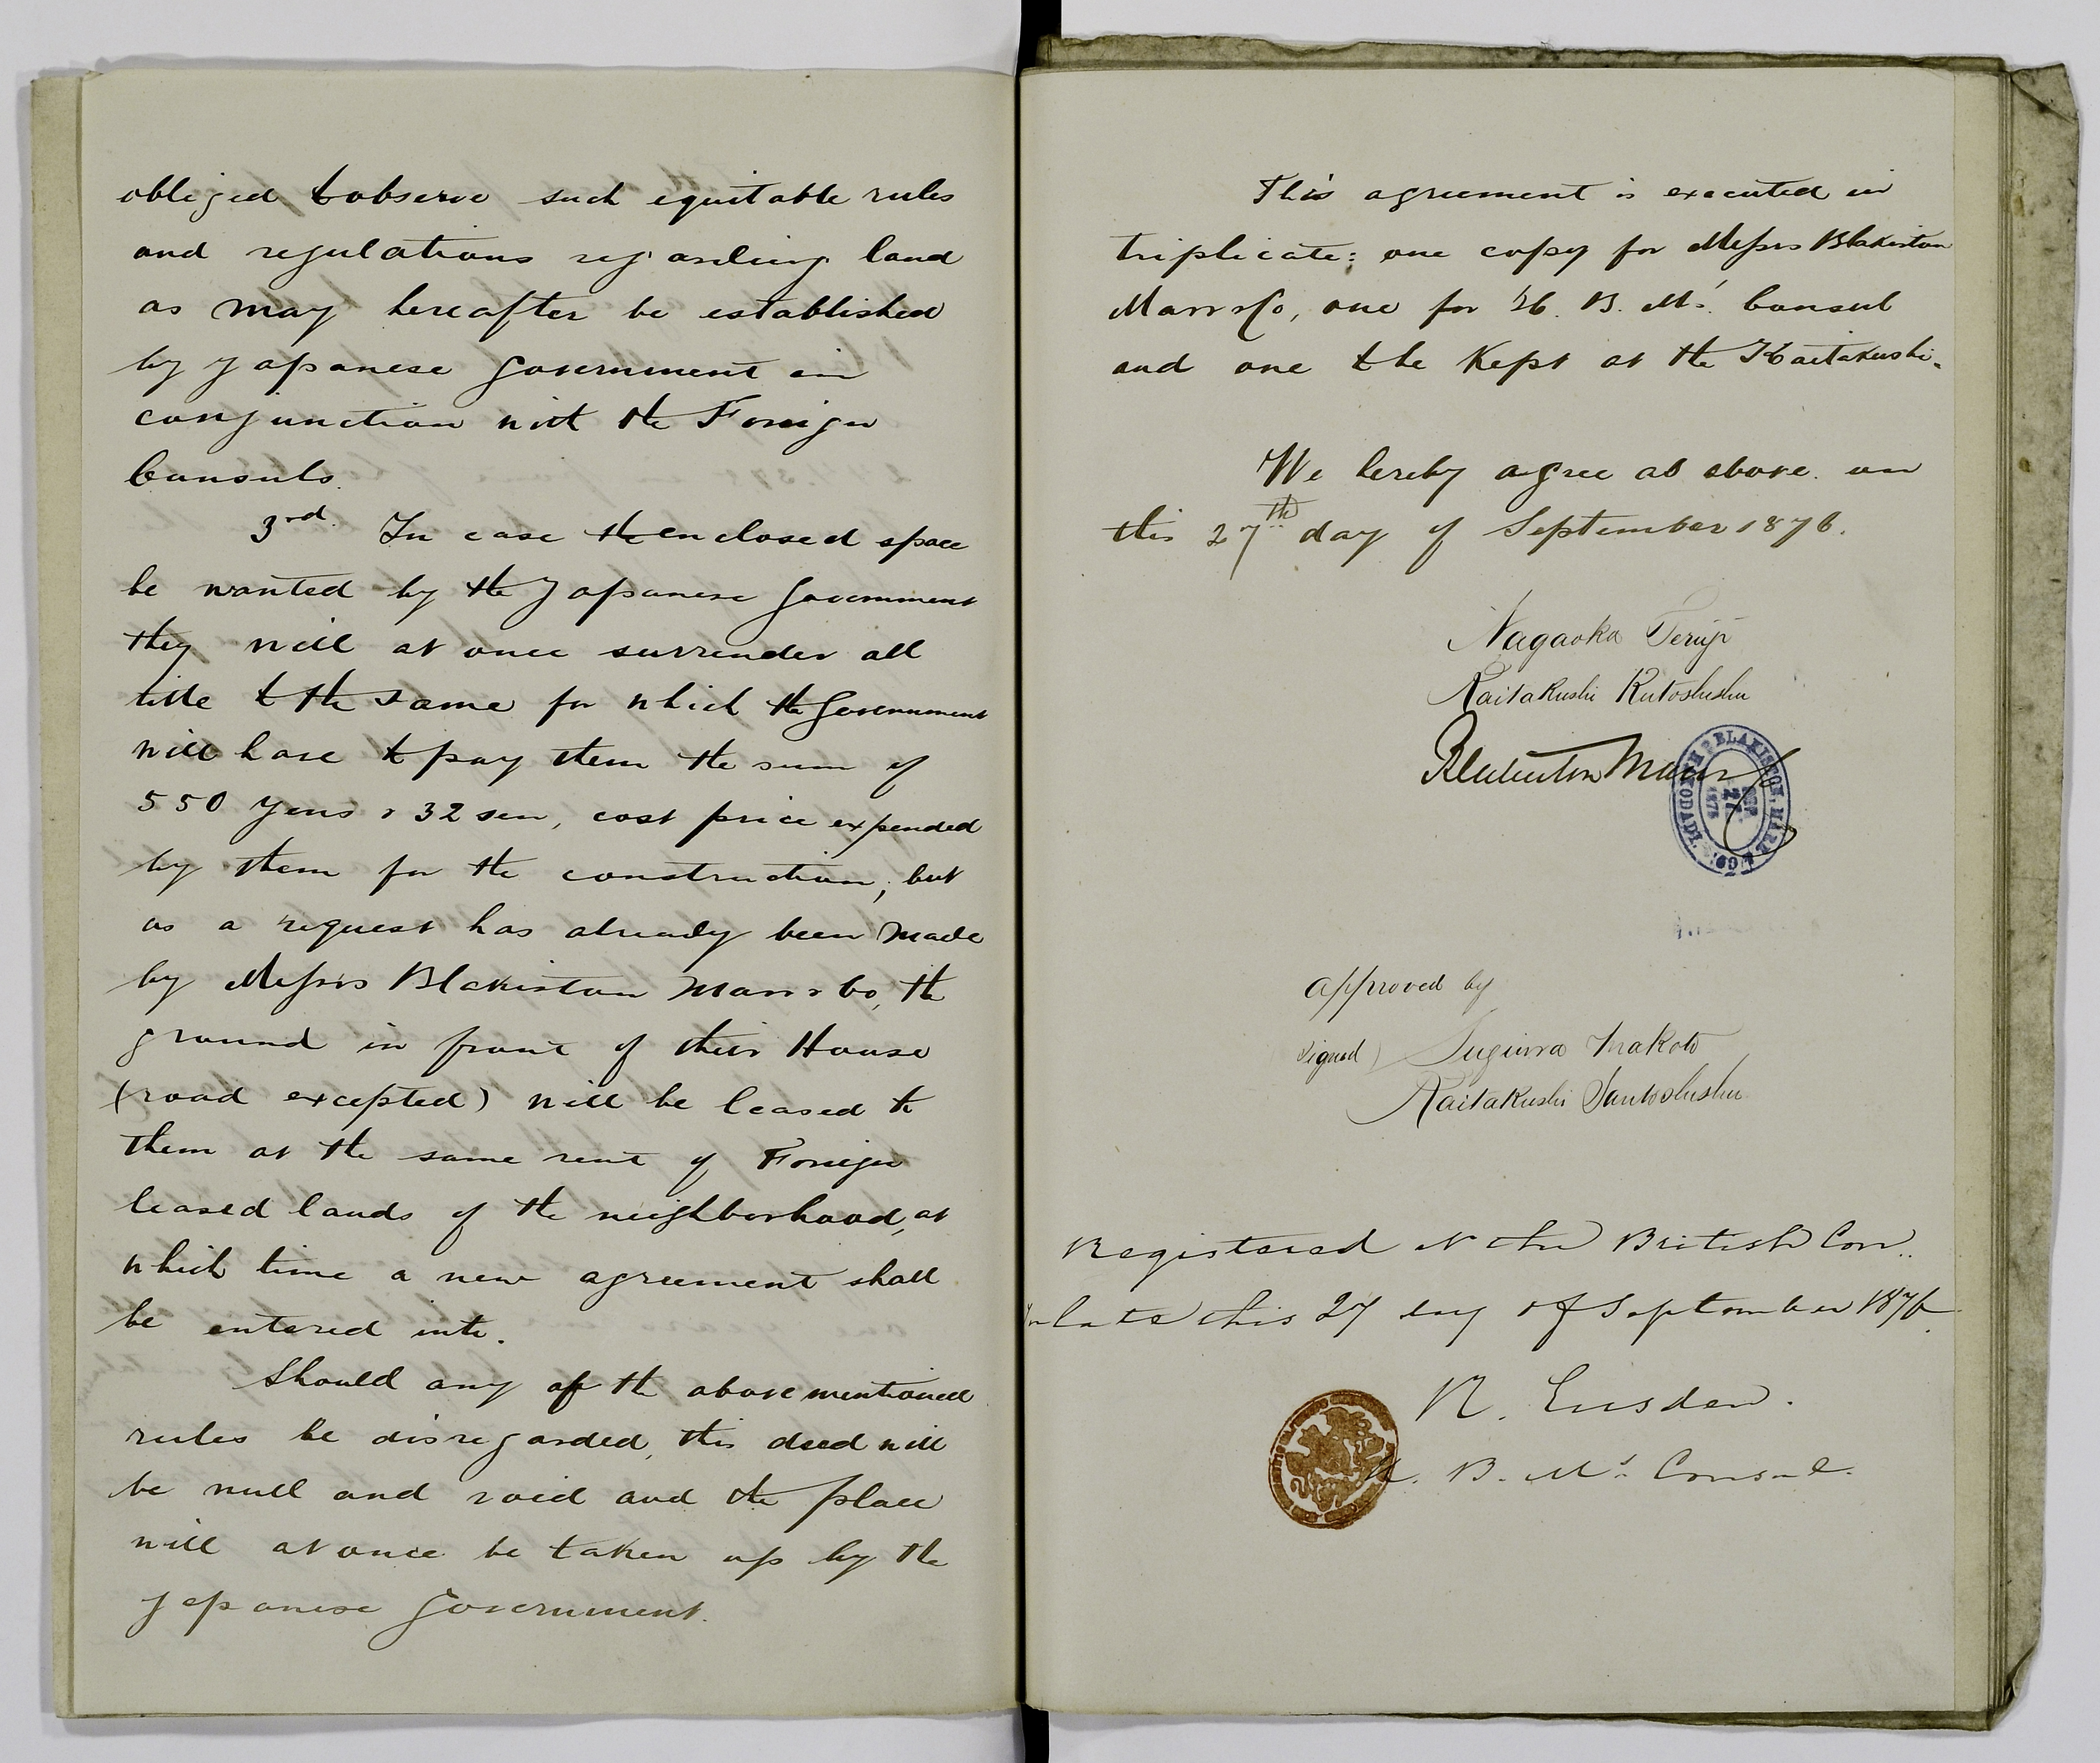 obliged to observe such equitable rules
and regulations regarding land
as may hereafter be established
by Japanese Government in
conjunction with the Foreign
Consuls.
3rd. In case the enclosed space
be wanted by the Japanese Government
they will at once surrender all
title to the same for which the Government
will have to pay them the sum of
550 yens & 32 sen, cost price expended
by them for the construction; but
as a request has already been made
by Messrs Blakiston Marr & Co, the
ground in front of their House
(road excepted) will be leased to
them at the same rent of Foreign
leased lands of the neighborhood, at
which time a new agreement shall
be entered into.
Should any of the above mentioned
rules be disregarded, this deed will
be null and void and the place
will at once be taken up by the
Japanese Government.
This agreement is executed in
triplicate: one copy for Messrs Blakiston
Marr & Co, one for H. B. M's. Consul
and one to be kept at the Kaitakushi.
We hereby agree as above on
this 27th day of September 1876.
Nagaoka Teruji
Kaitakushi Kutoshushu
Blakiston Marr & Co
BLAKISTON, MARR & CO. HAKODADI.
SEP 27 1876
approved by
signed) Sugiura Makoto
Kaitakushi Santoshushu
Registered at the British Con..
sulate this 27 day of September 1876.
R. Eusden.
H. B. M's. Consul.